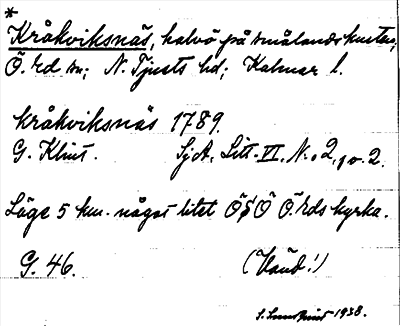 *
Kråkviksnäs, halvö på smålandskusten,
Ö. Ed sn; N. Tjusts hd; Kalmar l.
Kråkviksnäs 1789.
G. Klint. SjA, Litt. VI. N:o 2, 2.
Läge 5 km. något litet ÖSÖ Ö. Eds kyrka.
G. 46. (Vänd!)
1938.